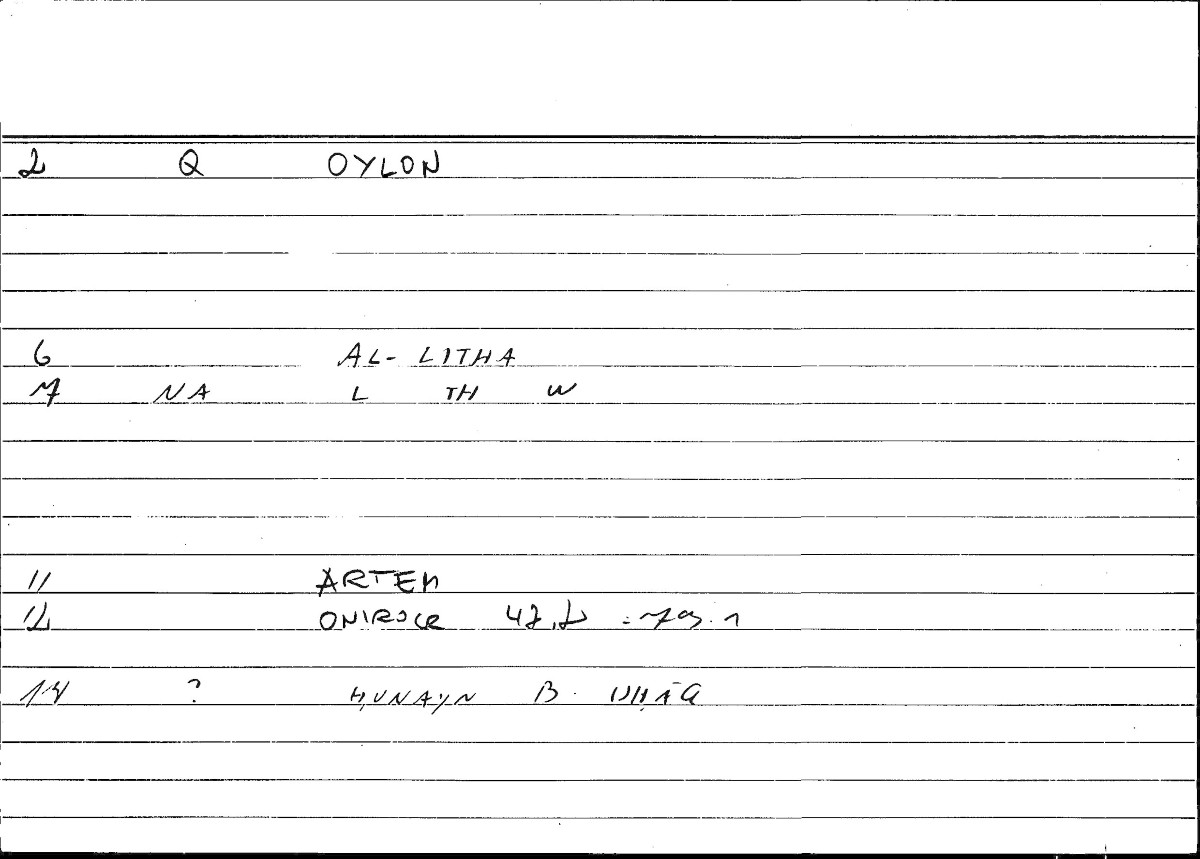 2 Q OYLON
6 AL-LITHA
7 NA L TH W
11 ARTEM
12 ONIROCR
14 ? ḤUNAYN B. ISḤĀQ